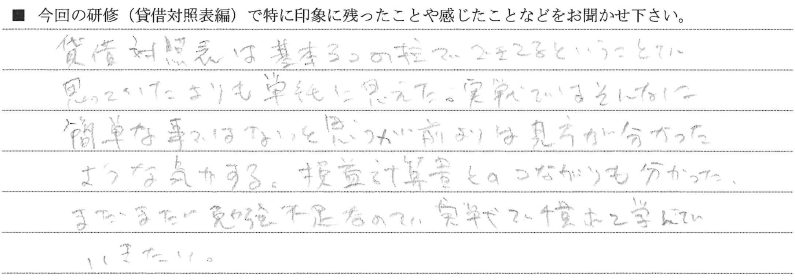 ■ 今回の研修（貸借対照表編）で特に印象に残ったことや感じたことなどをお聞かせ下さい。
貸借対照表は基本3つの柱でできてるということで
思っていたよりも単純に思えた。実戦ではそんなに
簡単な事ではないと思うが前よりは見方が分かった
ような気がする。損益計算書とのつながりも分かった。
まだまだ勉強不足なので、実戦で積んで学んで
いきたい。